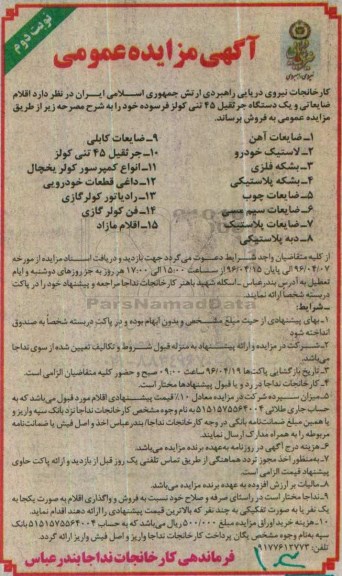 نوبت دوم
آگهی مزایده عمومی
کارخانجات نیروی دریایی راهبردی ارتش جمهوری اسلامی ایران در نظر دارد اقلام
ضایعاتی و یک دستگاه جرثقیل ۴۵ تنی کولز فرسوده خود را به شرح مصرحه زیر از طریق
مزایده عمومی به فروش برساند.
۱- ضایعات آهن
۲- لاستیک خودرو
۳- بشکه فلزی
۴- بشکه پلاستیکی
۵- ضایعات چوب
۶- ضایعات سیم مسی
۷- ضایعات پلاستیک
۸- دبه پلاستیکی
۹- ضایعات کابلی
۱۰- جرثقیل ۴۵ تنی کولز
۱۱- انواع کمپرسور کولر یخچال
۱۲- داغی قطعات خودرویی
۱۳- رادیاتور کولر گازی
۱۴- فن کولر گازی
۱۵- اقلام مازاد
از کلیه متقاضیان واجد شرایط دعوت می گردد جهت بازدید و دریافت اسناد مزایده از مورخه
۹۶/۰۴/۰۷ الی پایان ۹۶/۰۴/۱۵ از ساعت ۱۵:۰۰ الی ۱۷:۰۰ هر روز به جز روزهای دوشنبه و ایام
تعطیل به آدرس بندرعباس - اسکله شهید باهنر کارخانجات نداجا مراجعه و پیشنهاد خود را در پاکت
دربسته شخصاً ارائه نمایند.
- شرایط:
۱- بهای پیشنهادی از حیث مبلغ مشخص و بدون ابهام بوده و در پاکت دربسته شخصاً به صندوق
انداخته شود
۲- شرکت در مزایده و ارائه پیشنهاد به منزله قبول شروط و تکالیف تعیین شده از سوی نداجا
می باشد.
۳- تاریخ بازگشایی پاکت ها ۹۶/۰۴/۱۹ ساعت ۰۹:۰۰ صبح و حضور کلیه متقاضیان الزامی است.
۴- کارخانجات نداجا در رد و یا قبول پیشنهادها مختار است.
۵- میزان سپرده شرکت در مزایده معادل ۱۰٪ قیمت پیشنهادی اقلام مورد قبول می باشد که به
حساب جاری طلائی ۵۱۵۱۵۷۵۵۶۴۰۰۴ به نام وجوه مشخص کارخانجات نداجا نزد بانک سپه واریز و
یا همین مبلغ ضمانت نامه بانکی در وجه کارخانجات نداجا/ بندرعباس اخذ و اصل فیش یا ضمانت نامه
مربوطه را به همراه مدارک ارسال نمایند.
۶- هزینه درج آگهی در روزنامه به عهده برنده مزایده می باشد.
۷- به منظور اخذ مجوز تردد هماهنگی از طریق تماس تلفنی یک روز قبل از بازدید و ارائه پاکت حاوی
پیشنهاد قیمت الزامی است.
۸- مالیات بر ارزش افزوده به عهده برنده مزایده می باشد.
۹- نداجا مختار است در راستای صرفه و صلاح خود نسبت به فروش و واگذاری اقلام به صورت یکجا به
یک نفر یا به صورت تفکیکی به چند نفر که بالاترین قیمت پیشنهادی را ارائه دهند اقدام نماید.
۱۰- هزینه خرید اوراق مزایده مبلغ ۵۰۰/۰۰۰ ریال می باشد که به حساب ۵۱۵۱۵۷۵۵۶۴۰۰۴ بانک
سپه به نام وجوه مشخص یگان پرداخت کارخانجات نداجا واریز و اصل فیش واریز ارائه گردد.
تلفن: ۰۹۱۷۷۶۱۲۷۷۳
فرماندهی کارخانجات نداجا بندرعباس
ParsNamadData